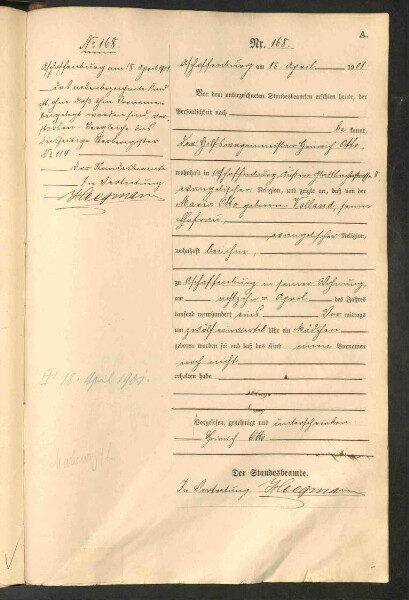 A.
No. 168.
Aschaffenburg am 18. April 1901
Das nebenbezeichnete Kind
ist, ohne daß ihm Vornamen
beigelegt worden sind, ver-
storben. Vergleiche das
diesseitige Sterberegister
No. 114.
Der Standesbeamte.
In Vertretung
Heegman
† 18. April 1901.
Nr. 168.
Aschaffenburg am 18. April 1901.
Vor dem unterzeichneten Standesbeamten erschien heute, der
Persönlichkeit nach
be kannt,
der Hilfswagenmeister Heinrich Otto
wohnhaft in Aschaffenburg, 8,
evangelischer Religion, und zeigte an, daß von der
Maria Otto geborenen Volland, seiner
Ehefrau
evangelischer Religion,
wohnhaft bei ihm,
zu Aschaffenburg in seiner Wohnung,
am achtzehn ten April des Jahres
tausend neunhundert eins Vor mittags
um zwölf einviertel Uhr ein Mädchen
geboren worden sei und daß das Kind einen Vornamen
noch nicht
erhalten habe
Vorgelesen, genehmigt und unterschrieben
Heinrich Otto
Der Standesbeamte.
In Vertretung Heegman